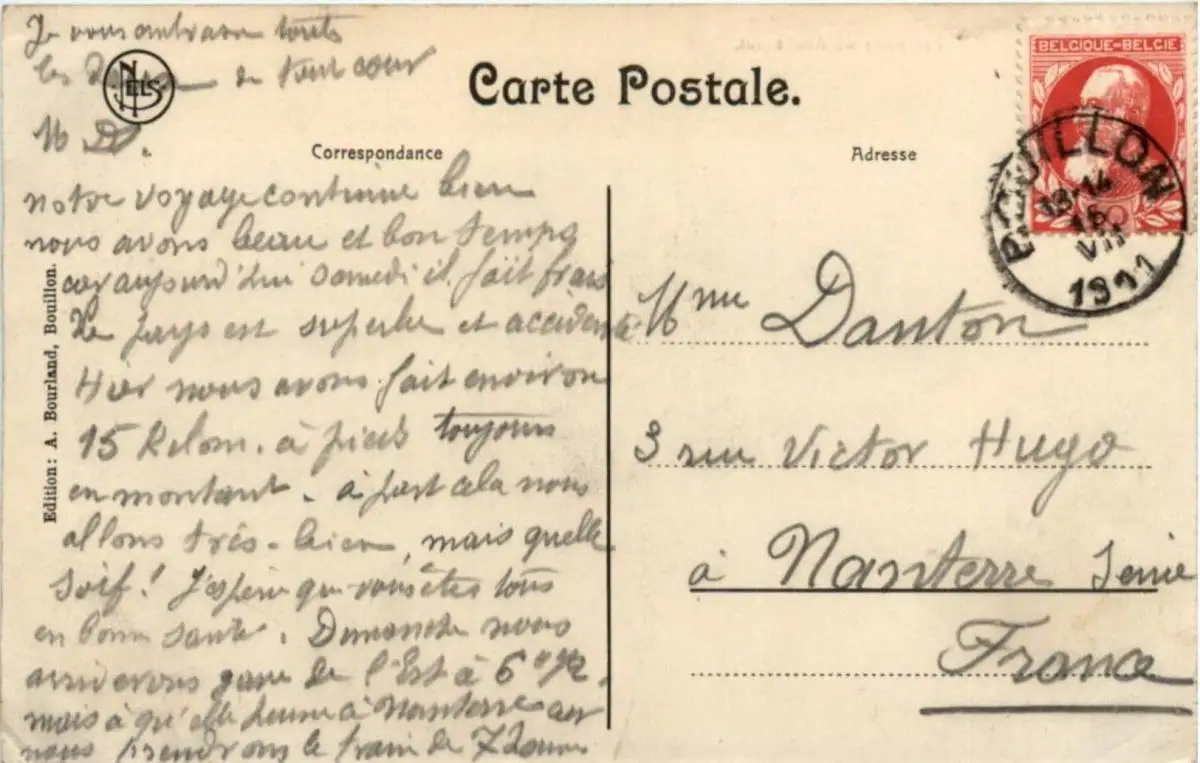 Je vous embrasse touts
les de tout cœur
M D.
NELS
Carte Postale.
Correspondance
Adresse
BELGIQUE-BELGIE
BOUILLON
13-14
15
VII
1911
notre voyage continue bien
nous avons beau et bon temps
car aujourd'hui samedi il fait frais
Le pays est superbe et accidenté
Hier nous avons fait environ
15 Kilom. à pieds toujours
en montant. à part cela nous
allons très-bien, mais quelle
soif! J'espère que vous êtes tous
en bonne santé. Dimanche nous
arriverons gare de l'Est à 6 h 1/2.
mais à qu'elle heure à Nanterre
nous prendrons le train de 7 heures
Mme Danton
3 rue Victor Hugo
à Nanterre Seine
France
Edition: A. Bourland, Bouillon.